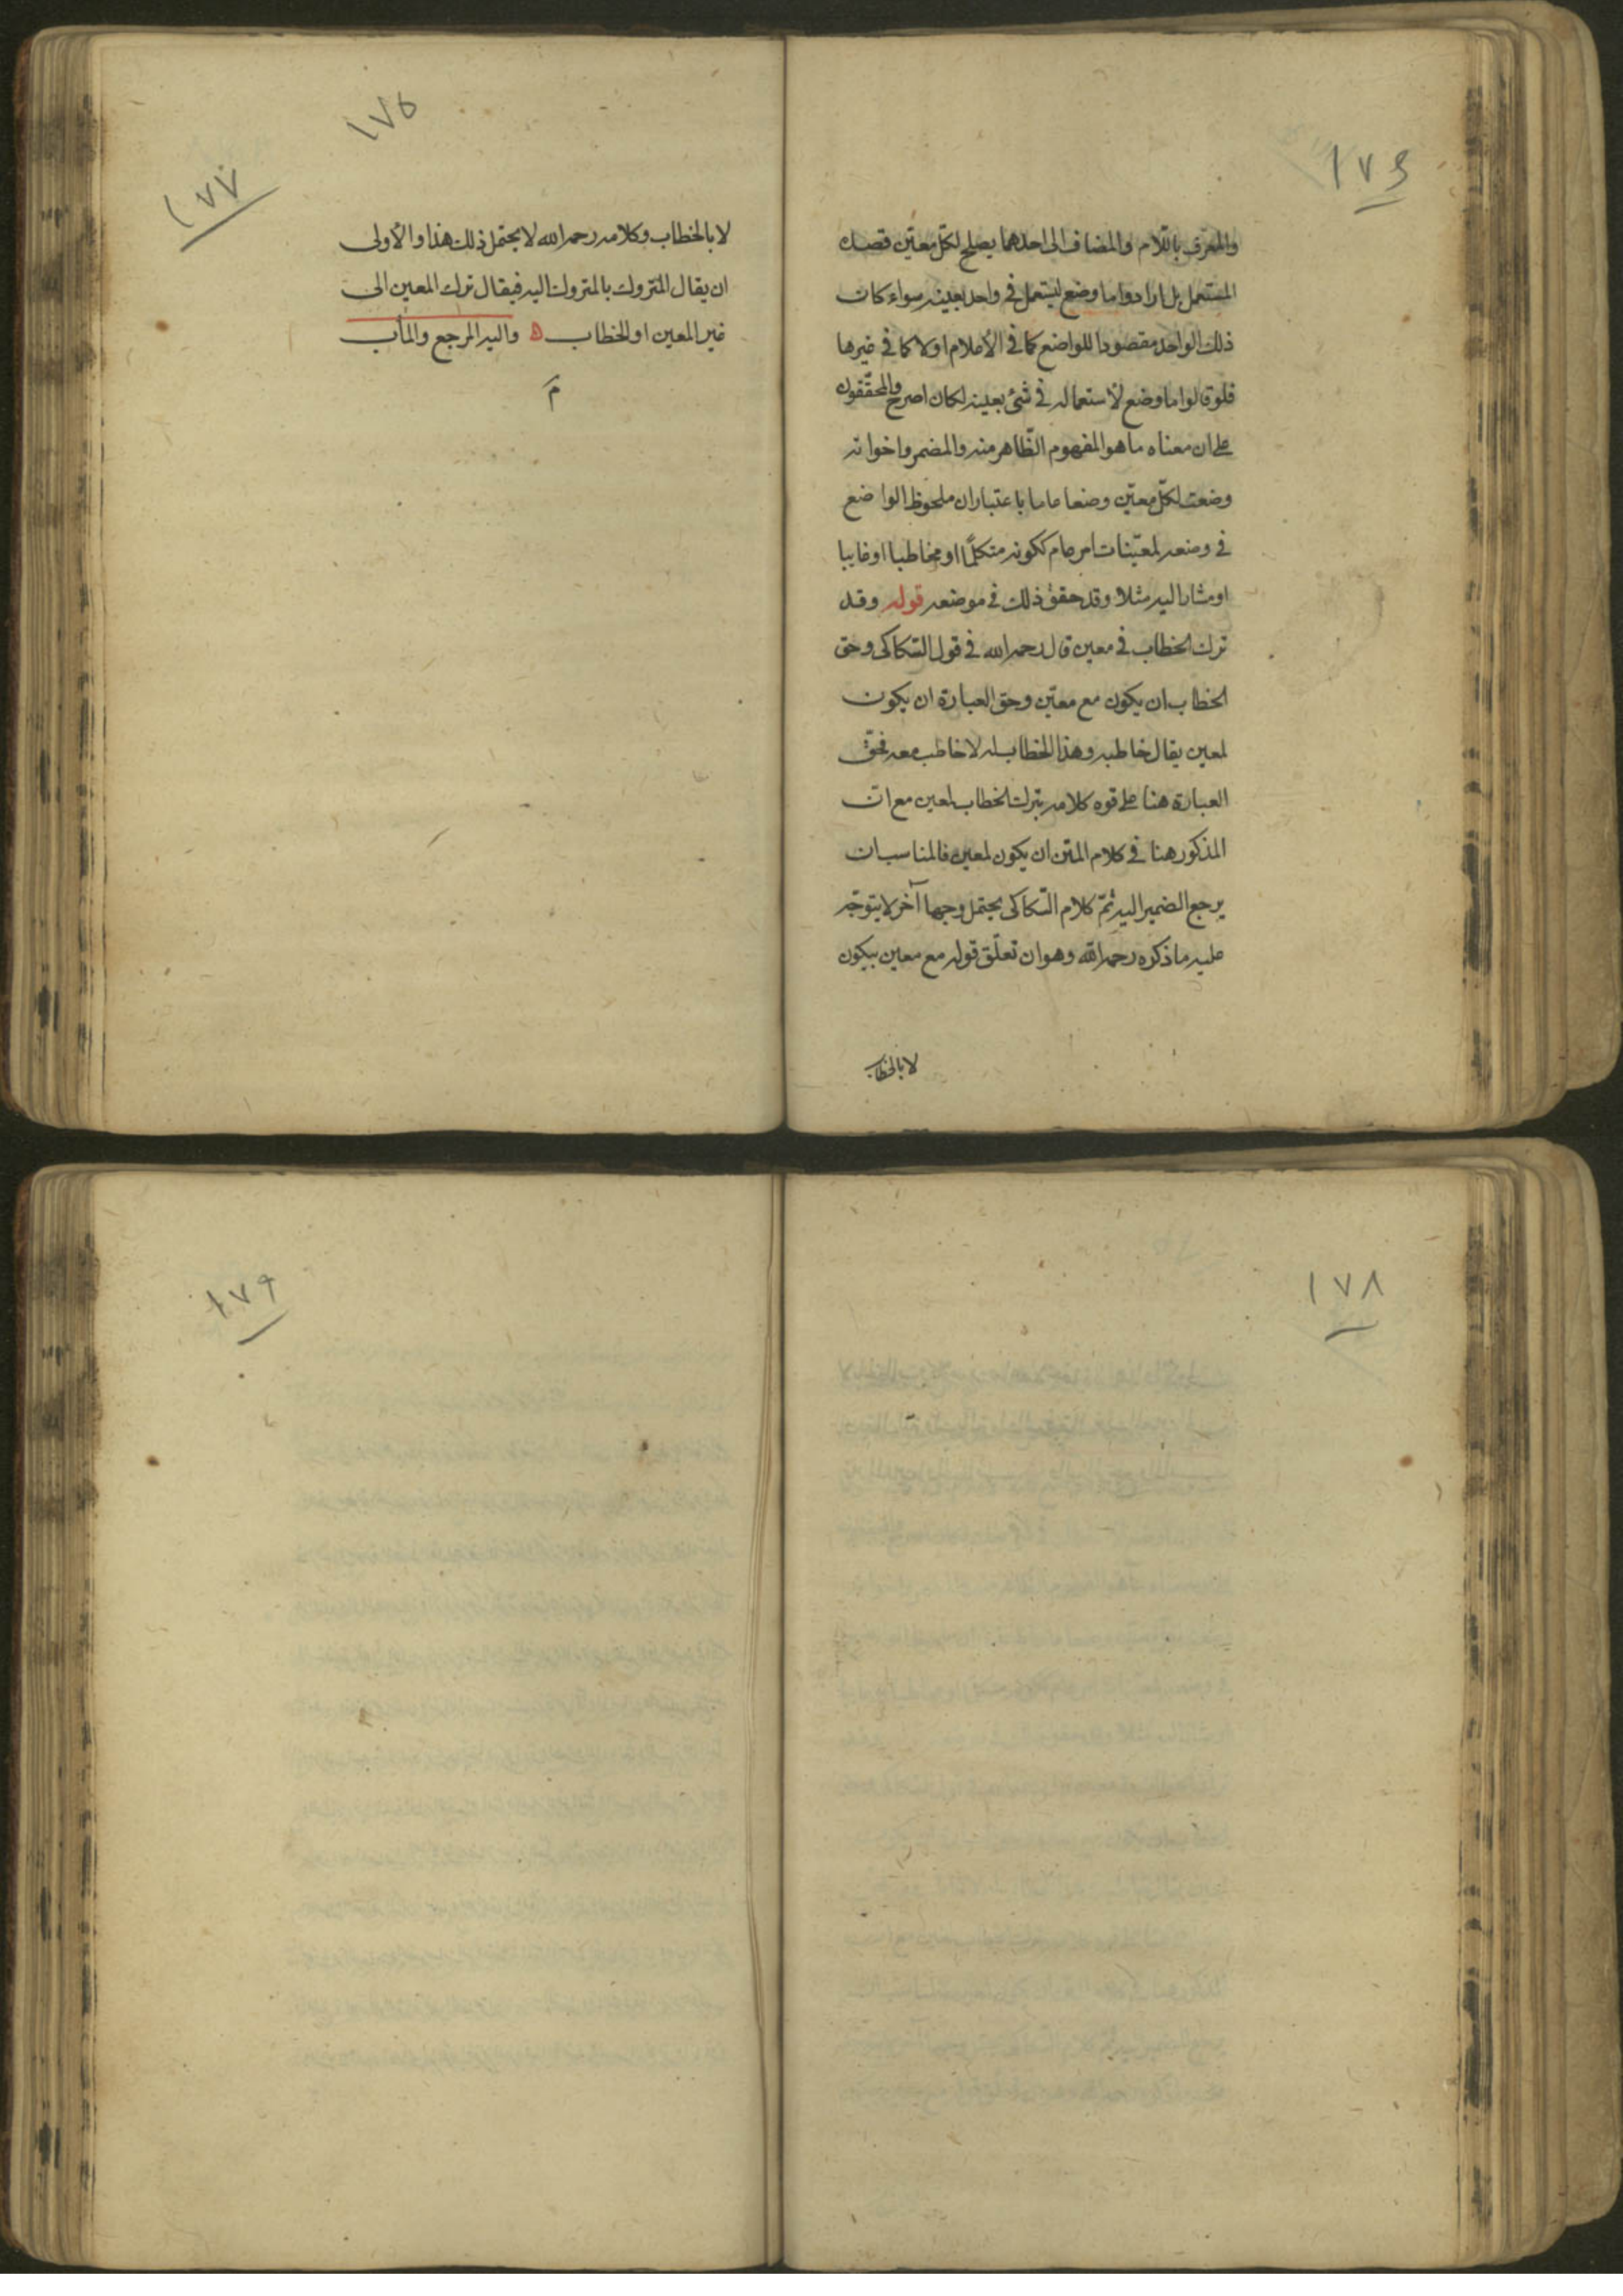 ١٧٦
والمعرف باللام والمضاف الى احدهما يصلح لكل معين قصده
المستعمل بل ارادوا ما وضع ليستعمل في واحد بعينه سواء كان
ذلك الواحد مقصودا للواضع كما في الأعلام اولا كما في غيرها
فلو قالوا ما وضع لاستعماله في شئ بعينه لكان اصرح والمحققون
على ان معناه ما هو المفهوم الظاهر منه والمضمر واخواته
وضعت لكل معين وضعا عاما باعتبار ان ملحوظ الواضع
في وضعه لمعينات امر عام ككونه متكلمًا او مخاطبا او غايبا
او مشارا اليه مثلا وقد حقق ذلك في موضعه قوله وقد
ترك الخطاب في معين قال رحمه الله في قول السكاكى وحق
الخطاب ان يكون مع معين وحق العبارة ان يكون
لمعين يقال خاطبه وهذا الخطاب له لا خاطب معه فحق
العبارة هنا على قوه كلامه بترك الخطاب لمعين مع ان
المذكور هنا في كلام المتن ان يكون لمعين فالمناسب ان
يرجع الضمير اليه ثمّ كلام السكاكى يحتمل وجها آخر لا يتوجه
عليه ما ذكره رحمه الله وهو ان تعلّق قوله مع معين بيكون
لا بالخطاب
١٧٥
١٧٧
لا بالخطاب وكلامه رحمه الله لا يحتمل ذلك هذا والأولى
ان يقال المتروك بالمتروك اليه فيقال ترك المعين الى
غير المعين او الخطاب ه واليه المرجع والمأب
م
١٧٨
١٧٩